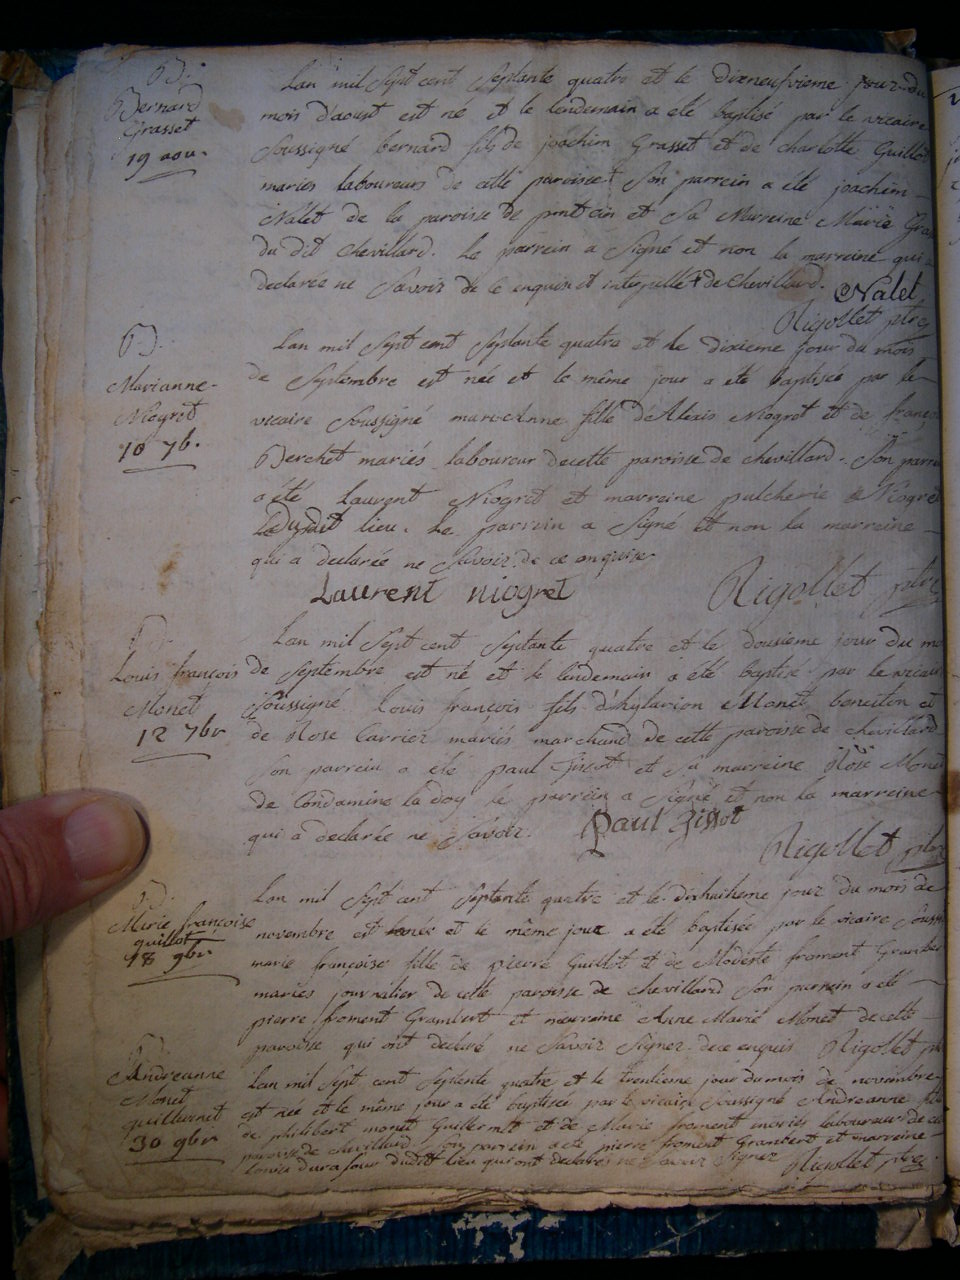 B.
Bernard
Grasset
19 aou.
Lan mil Sept cent Septante quatre et le dixneufvieme jour du
mois d'aoust est né et le lendemain a eté baptisé par le vicaire
Soussigné bernard fils de joachim Grasset et de charlotte Guillot
mariés laboureurs de cette paroisse. Son parrein a été joachim
Nalet de la paroisse de pont cin et Sa Marreine Marie Gras
du dit Chevillard. Le parrein a Signé et non la marreine qui a
declarée ne Savoir de ce enquise et interpellée de Chevillard. Nalet
Rigollet ptre
B.
Marianne
Niogret
10 7b.
Lan mil Sept cent Septante quatre et le dixieme jour du mois
de Septembre est née et le même jour a eté baptisée par le
vicaire Soussigné marieanne fille d'Alexis Niogret et de françoi
Berchet mariés laboureur de cette paroisse de chevillard. Son parre
a été Laurent Niogret et marreine pulcherie Niogret
dudit lieu. Le parrein a Signé et non la marreine
qui a declarée ne Savoir de ce enquise
Laurent niogret Rigollet ptre
B.
Louis françois
Monet
12 7br
Lan mil Sept cent Septante quatre et le dousieme jour du mo
de Septembre est né et le lendemain a été baptisé par le vicair
Soussigné Louis françois fils d'hylarion Monet beneiton et
de Rose Carrier mariés marchand de cette paroisse de chevillard
Son parrein a eté paul Zissot et Sa marreine Rose Monet
de Condamine la doy le parrein a Signé et non la marreine
qui a declarée ne Savoir. Paul Zissot
Rigollet ptre
B.
Marie françoise
guillot
18 9br
Lan mil Sept cent Septante quatre et le dixhuitieme jour du mois de
novembre est née et le même jour a eté baptisée par le vicaire Soussi
marie françoise fille de pierre Guillot et de Modeste froment Grambert
mariés journalier de cette paroisse de chevillard Son parrein a eté
pierre froment Grambert et marreine Anne Marie Monet de cette
paroisse qui ont declaré ne Savoir Signer de ce enquis Rigollet ptre
B.
Andreanne
Monet
guillermet
30 9br
Lan mil Sept cent Septante quatre et le trentieme jour du mois de novembre
est née et le même jour a eté baptisée par le vicaire Soussigné Andreanne fille
de philibert monet Guillermet et de Marie froment mariés laboureurs de ce
paroisse de chevillard Son parrein a ete pierre froment Grambert et marreine
dudit lieu qui ont declaré ne Savoir Signer Rigollet ptre